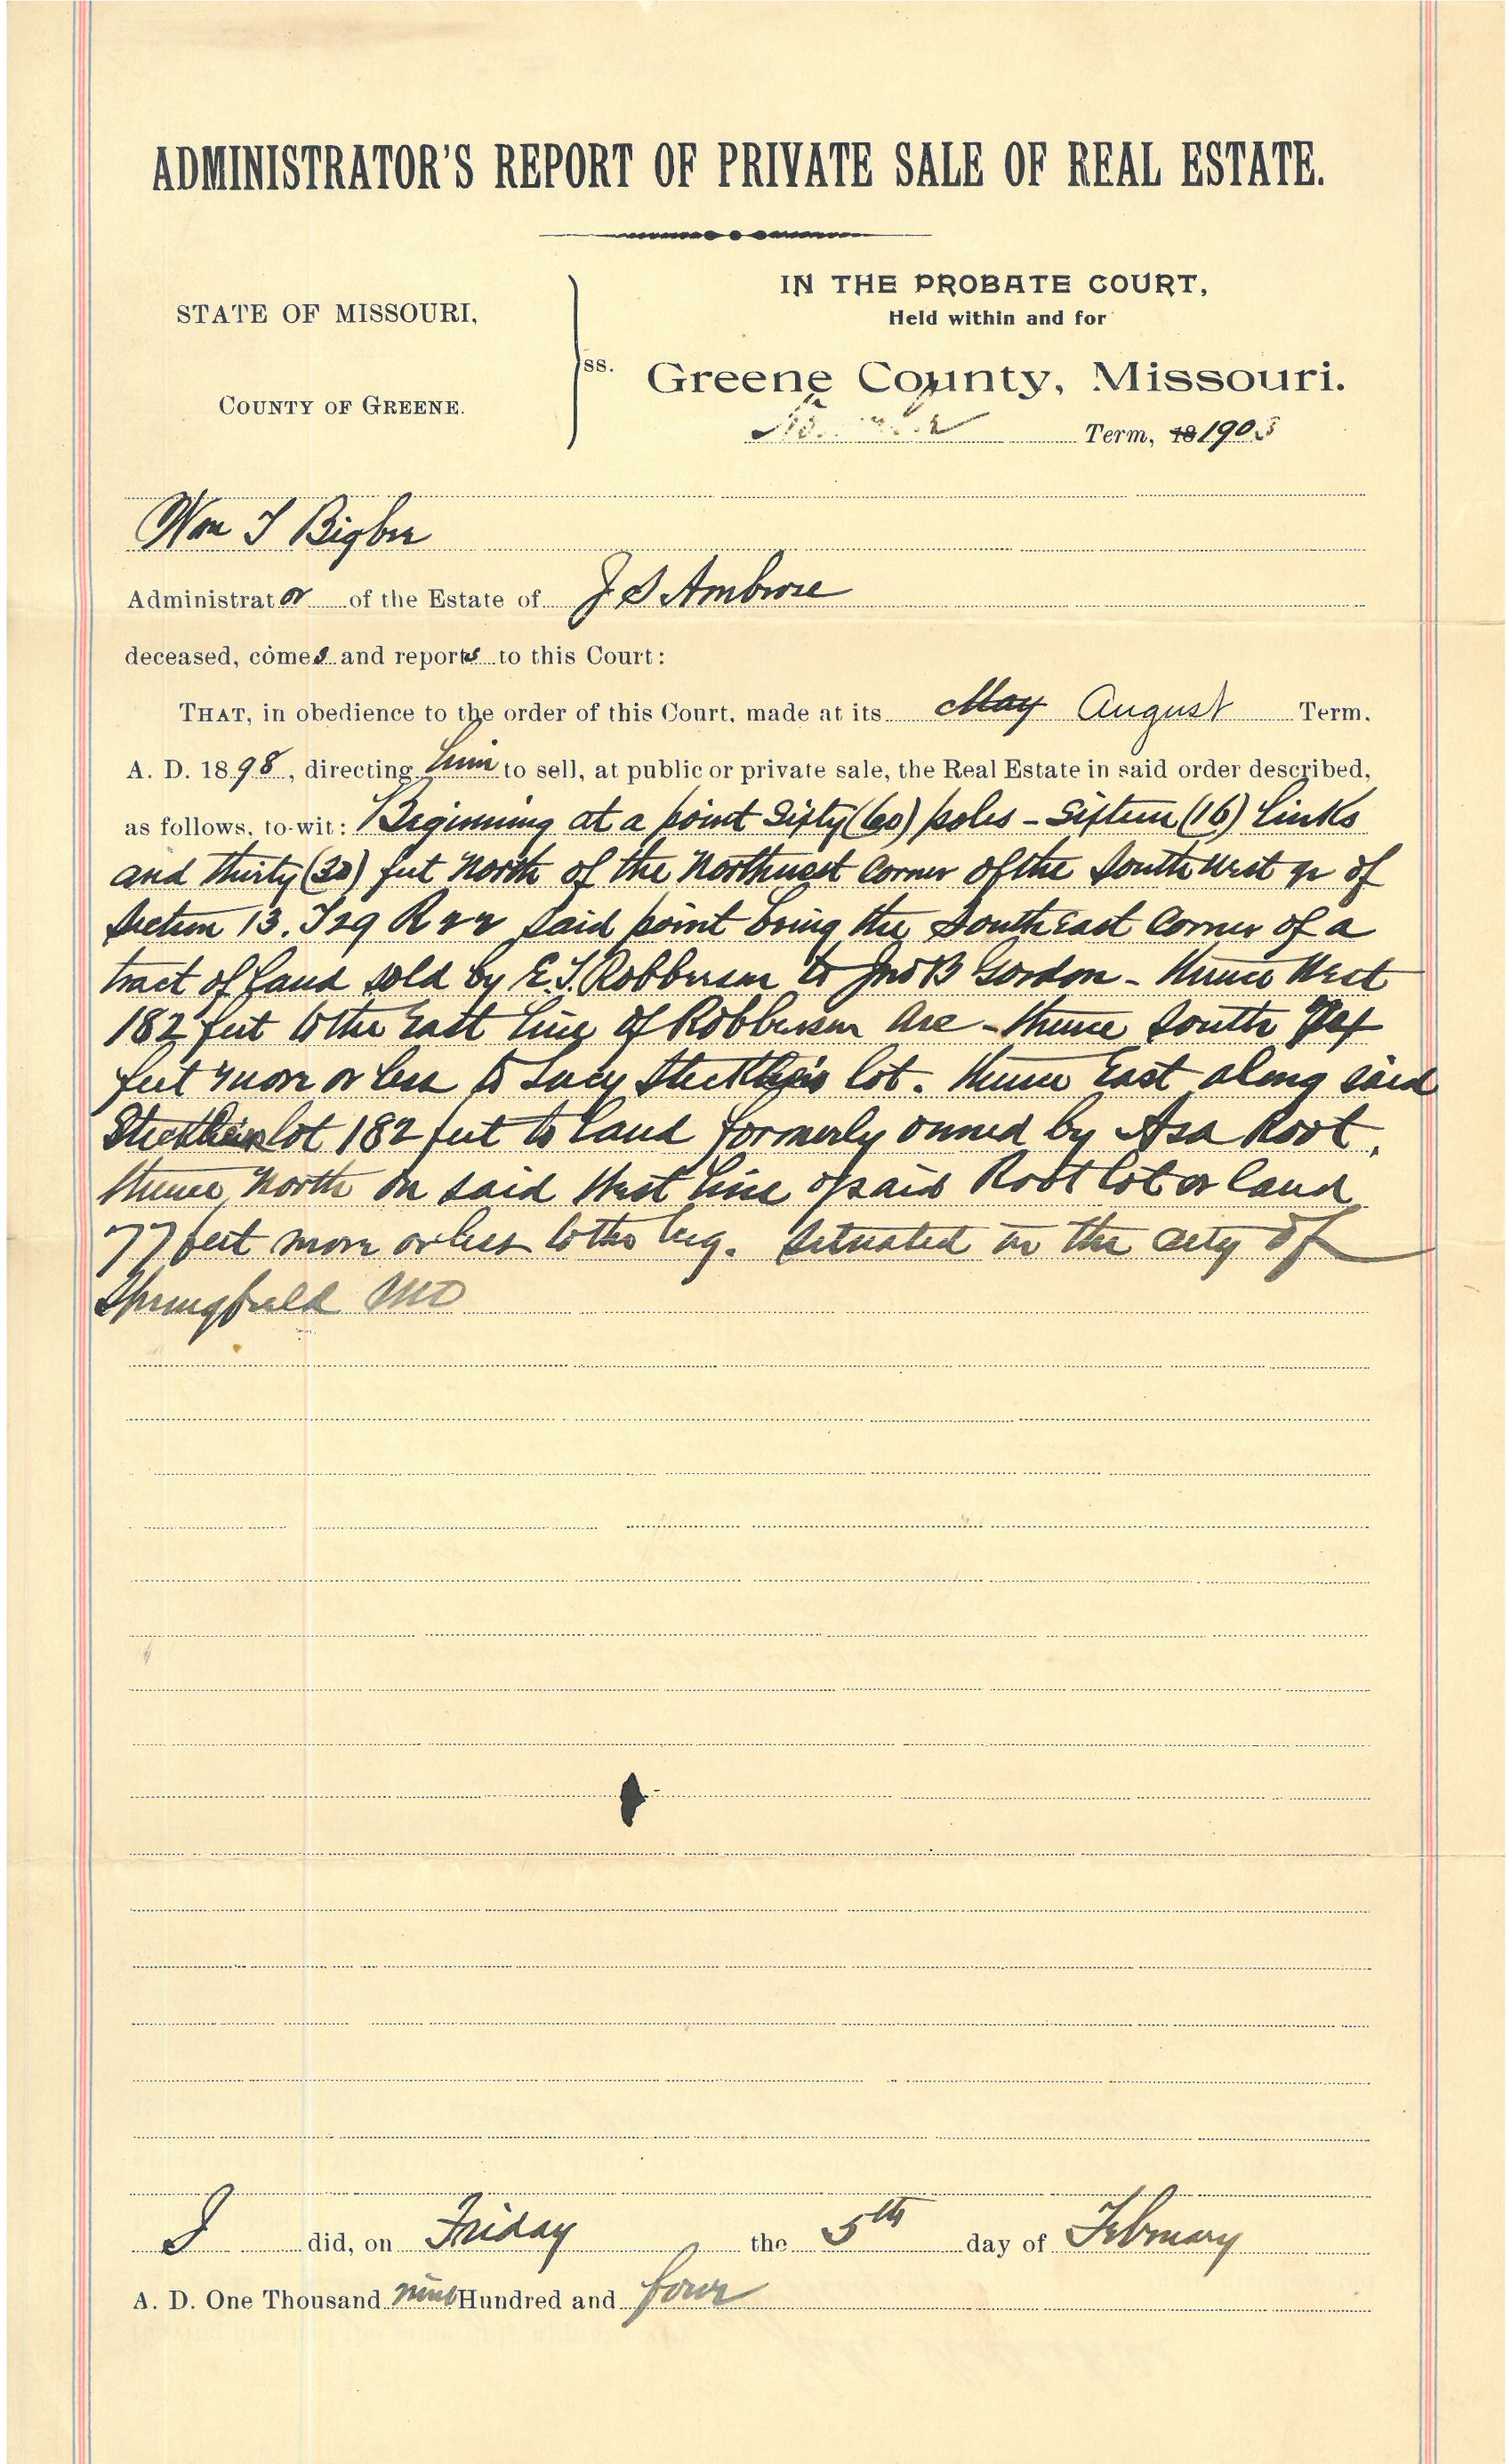 ADMINISTRATOR'S REPORT OF PRIVATE SALE OF REAL ESTATE.
STATE OF MISSOURI,
COUNTY OF GREENE.
ss.
IN THE PROBATE COURT,
Held within and for
Greene County, Missouri.
Term, 18 190
Wm T Bigbee
Administrator of the Estate of J S Ambrose
deceased, comes and reports to this Court:
THAT, in obedience to the order of this Court, made at its May August Term,
A. D. 1898, directing him to sell, at public or private sale, the Real Estate in said order described,
as follows, to-wit: Beginning at a point Sixty (60) poles - Sixteen (16) Links
and thirty (30) feet North of the Northwest Corner of the South West qr of
Section 13. T29 R22 said point being the South East Corner of a
tract of land sold by E.T. Robberson to Jno B Gordon - thence West
182 feet to the East line of Robberson Ave - thence South
feet more or less to Lucy lot. thence East along said
lot 182 feet to land formerly owned by Asa Root,
thence North on said West line of said Root lot or land
77 feet more or less to the beg. Situated in the City of
Springfield MO
I did, on Friday the 5th day of February
A. D. One Thousand nine Hundred and four